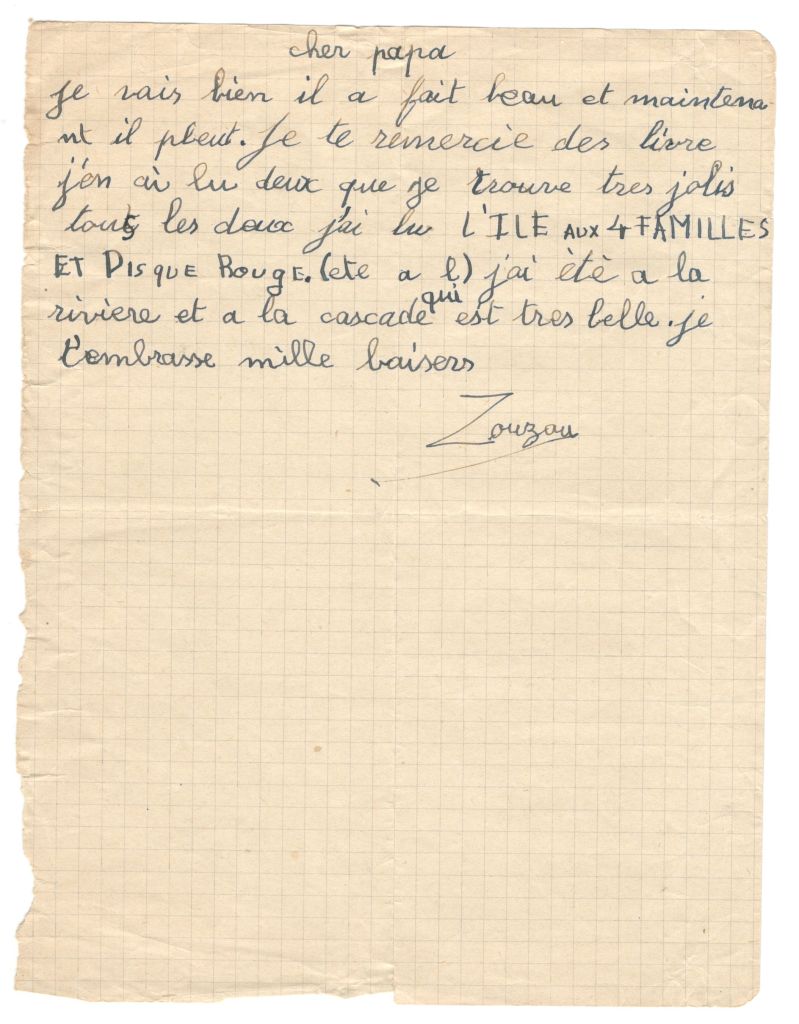 cher papa
je vais bien il a fait beau et maintena
nt il pleut. Je te remercie des livre
j'en ai lu deux que je trouve tres jolis
tous les deux j'ai lu L'ILE AUX 4 FAMILLES
ET DISQUE ROUGE. (ete a l) j'ai èté a la
riviere et a la cascade qui est tres belle. je
t'embrasse mille baisers
Zouzou